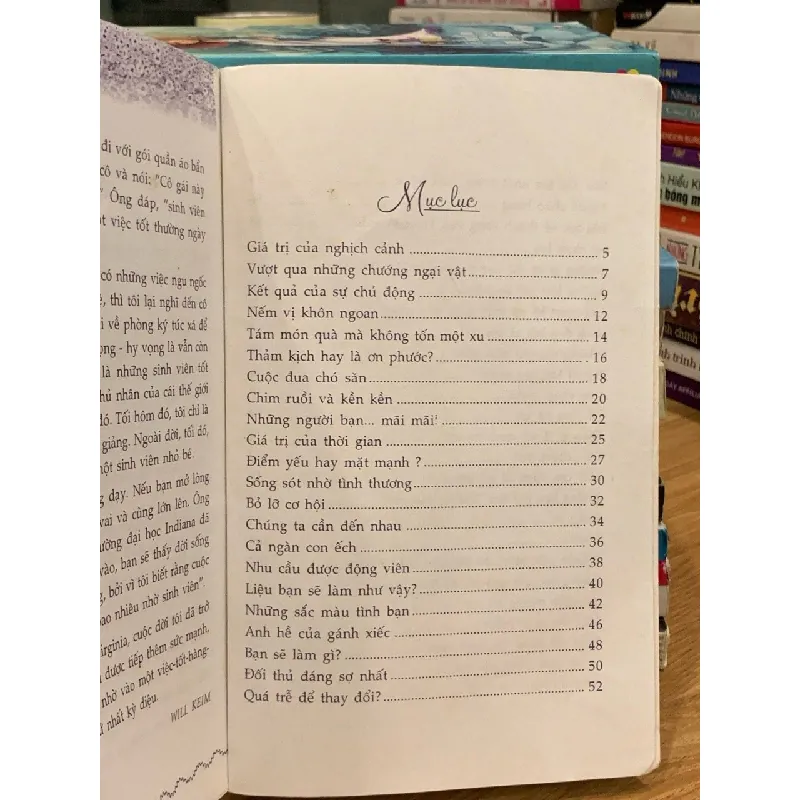 đi với gói quần áo bẩn
cô và nói: "Cô gái này
" Ông đáp, "sinh viên
t việc tốt thường ngày
có những việc ngu ngốc
, thì tôi lại nghĩ đến cô
i về phòng ký túc xá để
ọng - hy vọng là vẫn còn
là những sinh viên tốt
hủ nhân của cái thế giới
đó. Tối hôm đó, tôi chỉ là
giảng. Ngoài đời, tối đó,
một sinh viên nhỏ bé.
g dạy. Nếu bạn mở lòng
vai và cùng lớn lên. Ông
ường đại học Indiana đã
vào, bạn sẽ thấy đời sống
g, bởi vì tôi biết rằng cuộc
ao nhiêu nhờ sinh viên".
irginia, cuộc đời tôi đã trở
được tiếp thêm sức mạnh,
nhờ vào một việc-tốt-hàng-
nhất kỳ diệu.
WILL KEIM
Mục lục
Giá trị của nghịch cảnh 5
Vượt qua những chướng ngại vật 7
Kết quả của sự chủ động 9
Nếm vị khôn ngoan 12
Tám món quà mà không tốn một xu 14
Thảm kịch hay là ơn phước? 16
Cuộc đua chó săn 18
Chim ruồi và kền kền 20
Những người bạn... mãi mãi! 22
Giá trị của thời gian 25
Điểm yếu hay mặt mạnh ? 27
Sống sót nhờ tình thương 30
Bỏ lỡ cơ hội 32
Chúng ta cần đến nhau 34
Cả ngàn con ếch 36
Nhu cầu được động viên 38
Liệu bạn sẽ làm như vậy? 40
Những sắc màu tình bạn 42
Anh hề của gánh xiếc 46
Bạn sẽ làm gì? 48
Đối thủ đáng sợ nhất 50
Quá trễ để thay đổi? 52